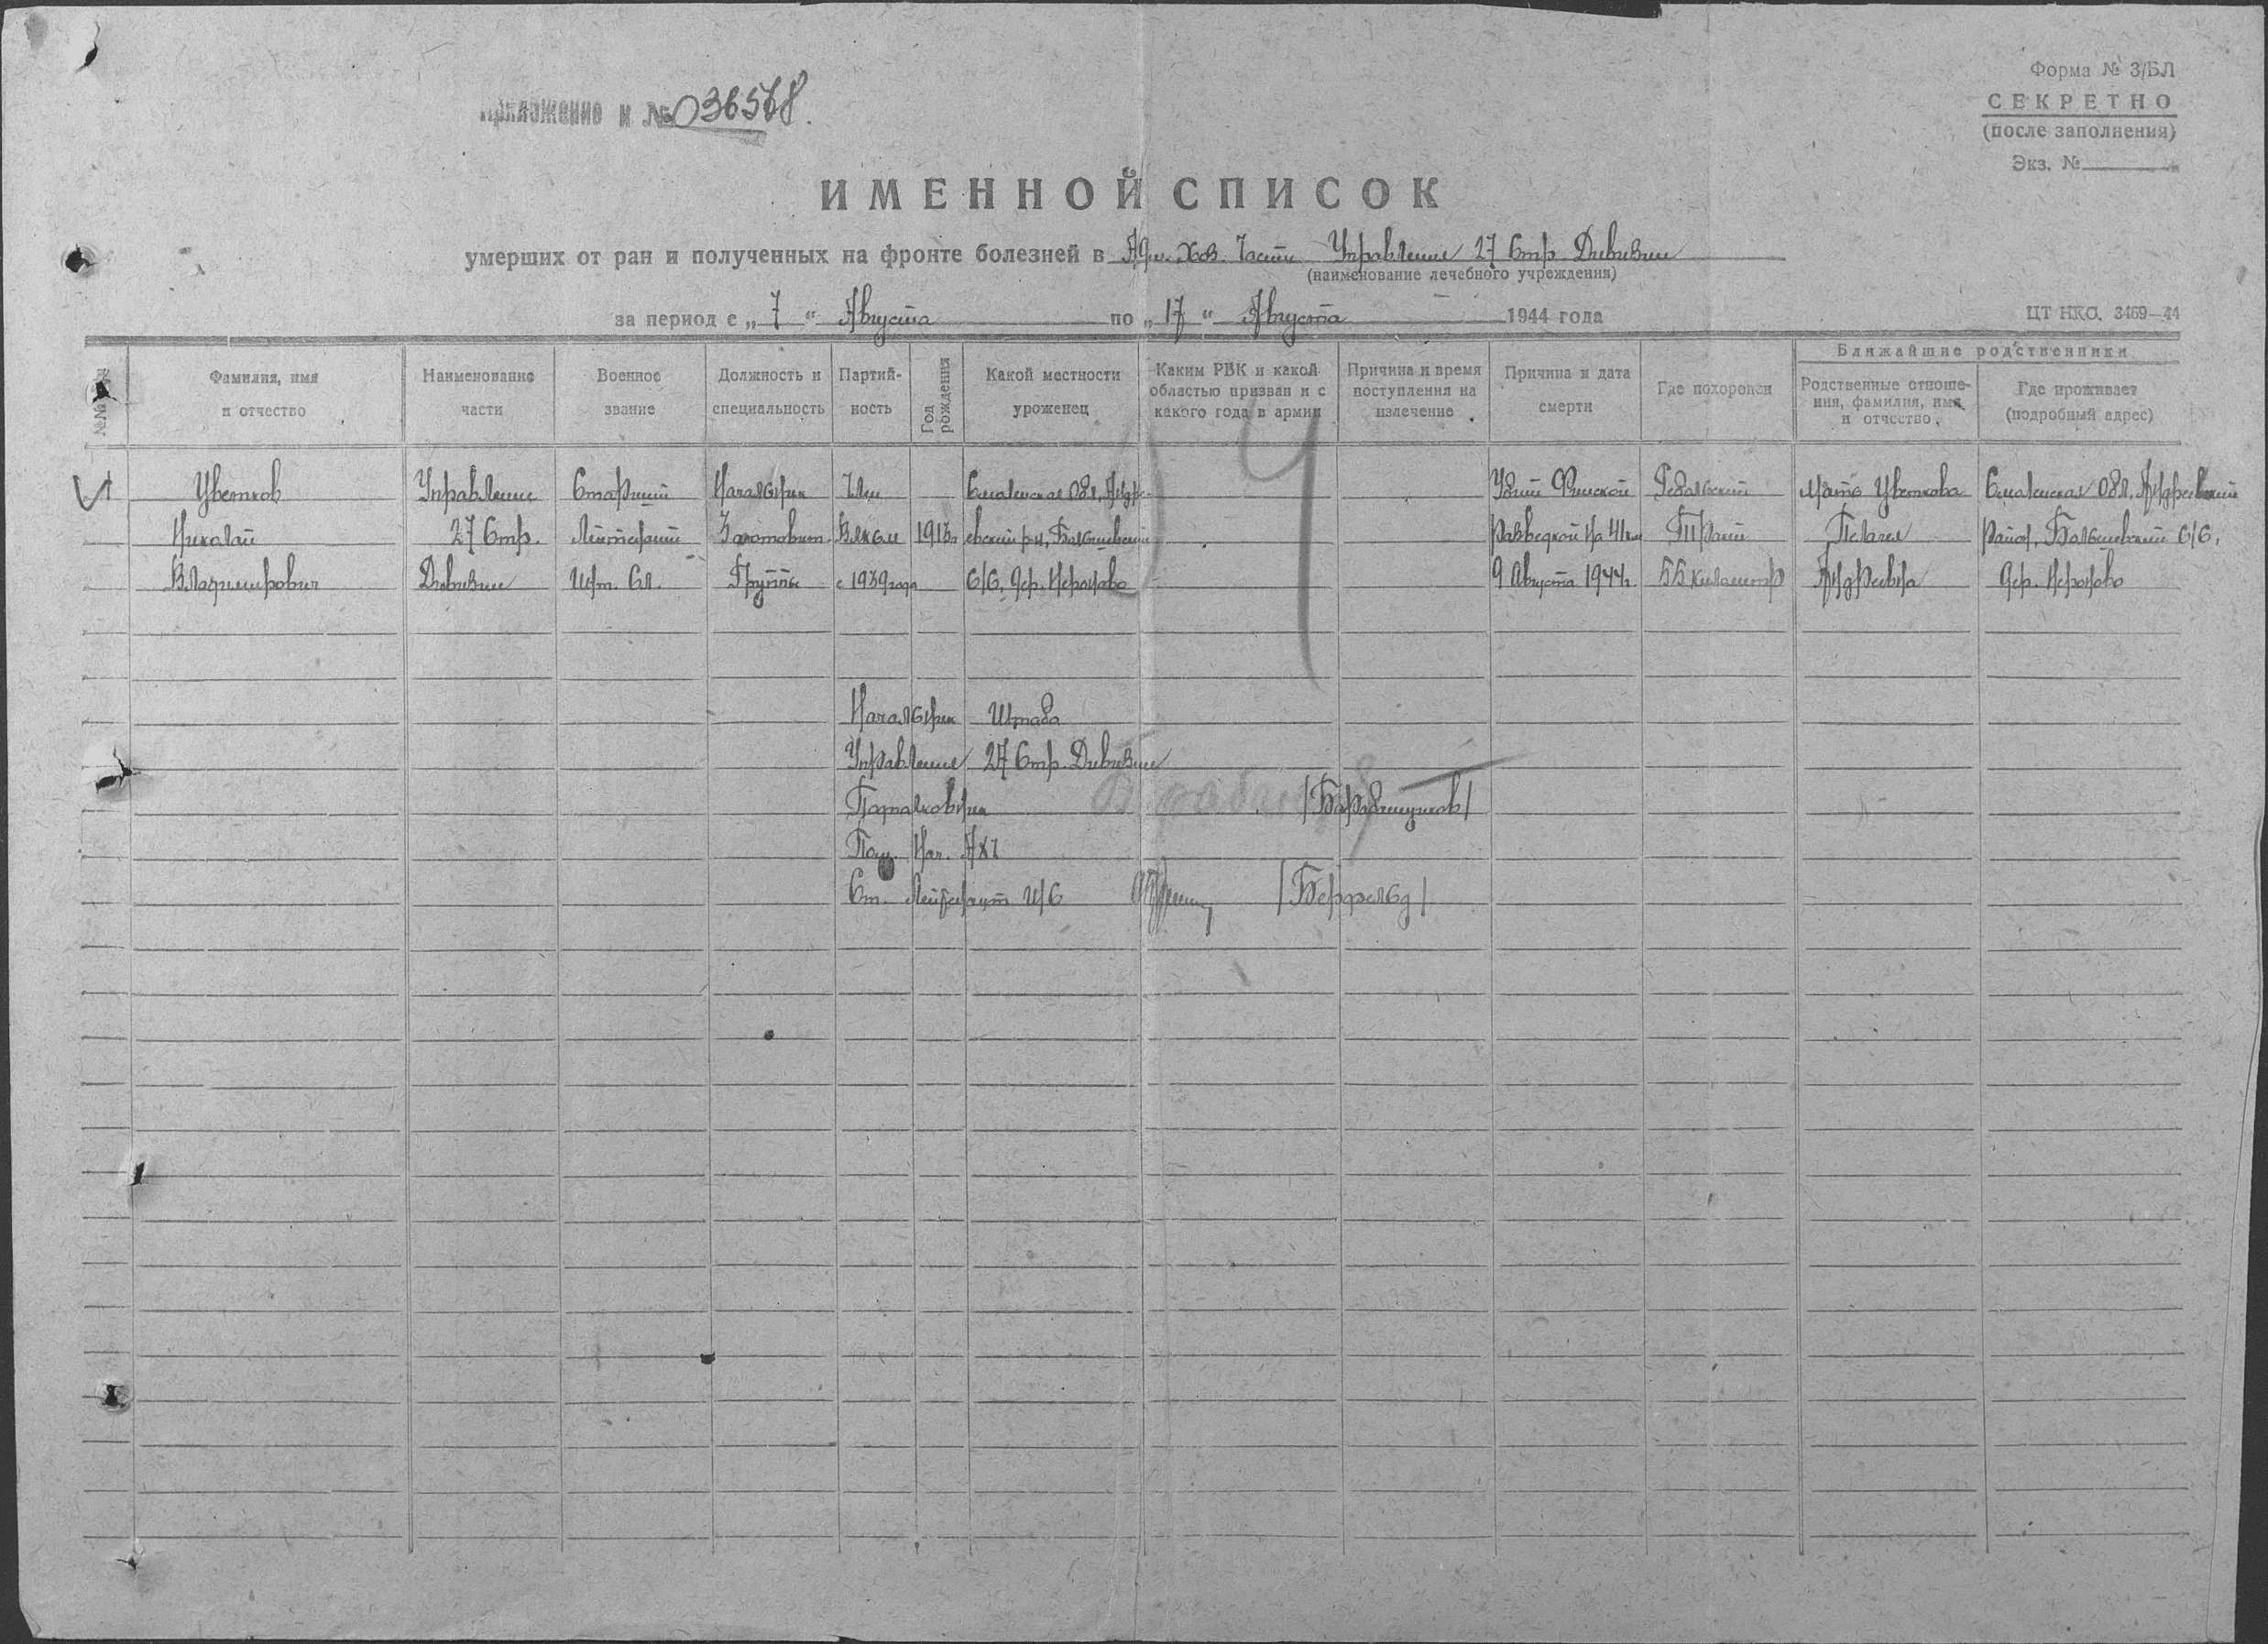 Форма № 3/БЛ
СЕКРЕТНО
(после заполнения)
Экз. №
Приложение к № 036568.
ИМЕННОЙ СПИСОК
умерших от ран и полученных на фронте болезней в Адм. Хоз. Части Управление 27 Стр. Дивизии
(наименование лечебного учреждения)
за период с „7“ Августа по „17“ Августа 1944 года
ЦТ НКО. 3469—44
№№
Фамилия, имя и отчество
Наименование части
Военное звание
Должность и специальность
Партийность
Год рождения
Какой местности уроженец
Каким РВК и какой областью призван и с какого года в армии
Причина и время поступления на излечение
Причина и дата смерти
Где похоронен
Ближайшие родственники
Родственные отношения, фамилия, имя и отчество
Где проживает (подробный адрес)
Цветков Управление Старший Начальник Член Смоленская Обл, Андре- Убит Финской Ребольский Мать Цветкова Смоленская Обл, Андреевский
Николай 27 Стр. Лейтенант Заготовит. ВЛКСМ 1913г. евский р-н, Большевский разведкой на 41 км Тракт Пелагея Район, Большевский С/С,
Владимирович Дивизии Инт. Сл. Группы с 1939 года С/С, дер. Неронова 9 Августа 1944г. 55 километр Андреевна дер. Неронова
Начальник Штаба
Управления 27 Стр. Дивизии
Подполковник /Барабанщиков/
Пом. Нач. АХЧ
Ст. Лейтенант И/С /Берфельд/